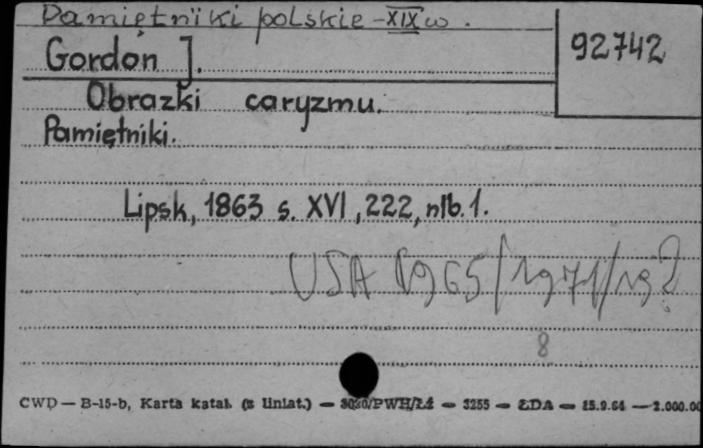 Pamiętniki polskie - XIX w.
Gordon J.
92742
Obrazki caryzmu.
Pamiętniki.
Lipsk, 1863 s. XVI, 222, nlb. 1.
USA 1965/1971/19?
8
CWD — B-15-b, Karta katal. (z liniat.) — 3030/PWH/Łź — 3255 — ŁDA — 15.9.64 — 2.000.00